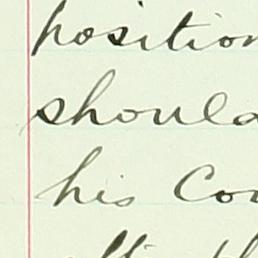 position
should
his Con